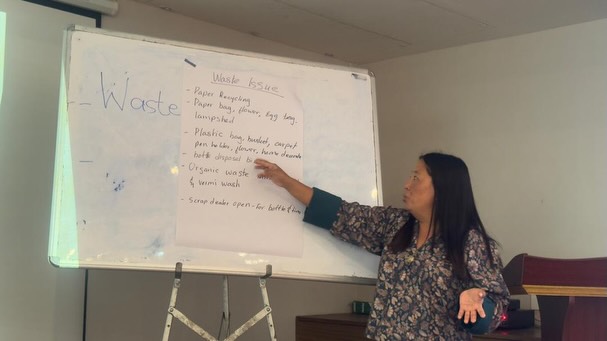 Waste
Waste Issue
- Paper Recycling
- Paper bag, flower, Egg bag,
lampshed
- Plastic bag, basket, carpet
pen holder, flower, home decorate
- bottle disposal
- Organic waste
& vermi wash
- Scrap dealer open - for bottle &